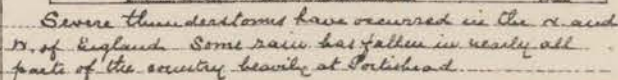 Severe thunderstorms have occurred in the N. and
N. of England. Some rain has fallen in nearly all
parts of the country heavily at Portishead